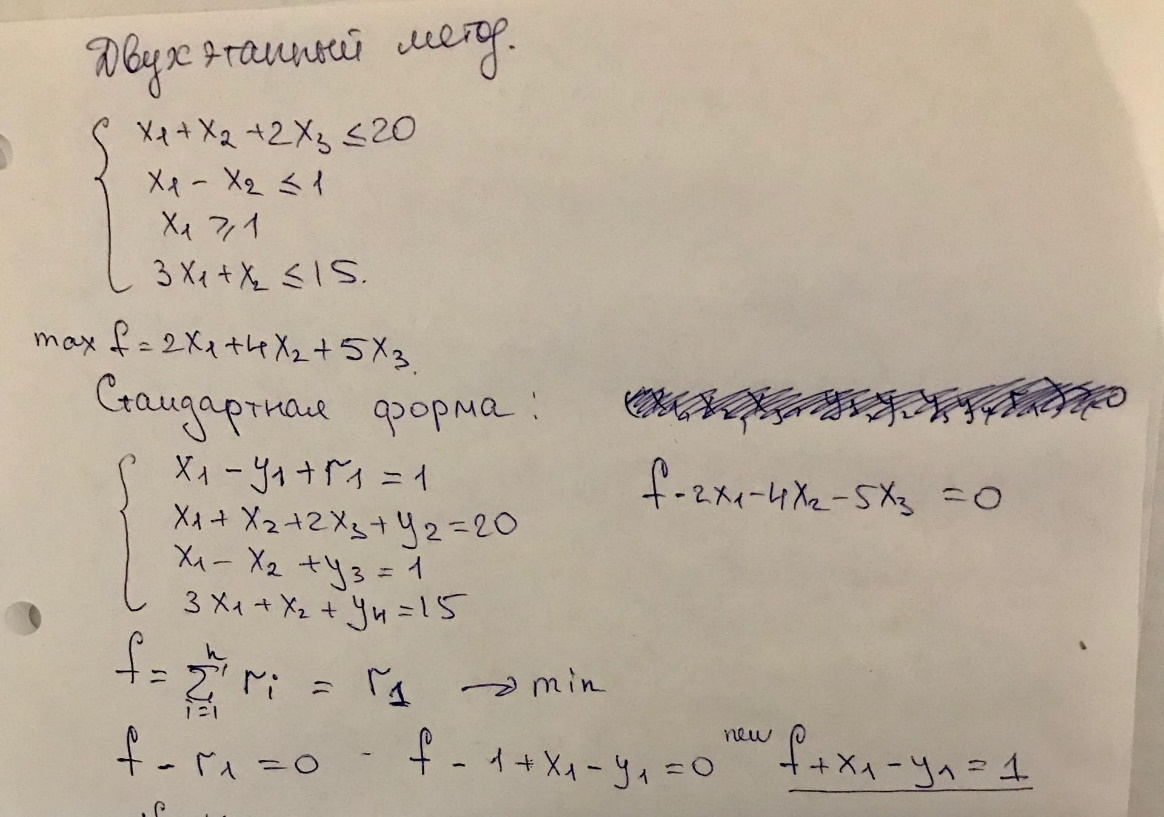 Двухэтапный метод.
x1 + x2 + 2x3 ≤ 20
x1 - x2 ≤ 1
x1 ⩾ 1
3x1 + x2 ≤ 15.
max f = 2x1 + 4x2 + 5x3.
Стандартная форма:
x1 - y1 + r1 = 1
f - 2x1 - 4x2 - 5x3 = 0
x1 + x2 + 2x3 + y2 = 20
x1 - x2 + y3 = 1
3x1 + x2 + y4 = 15
f = ∑ i=1 n ri = r1 → min
f - r1 = 0 - f - 1 + x1 - y1 = 0 new f + x1 - y1 = 1